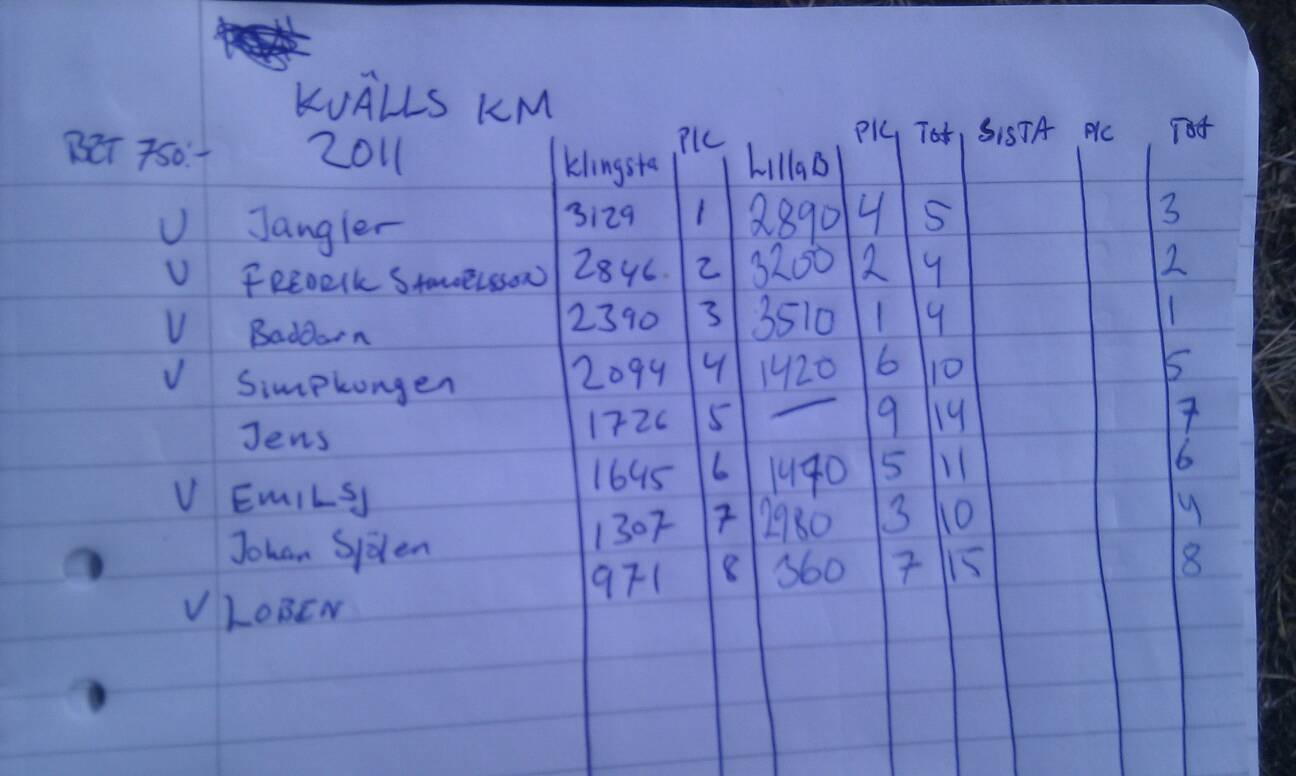 KVÄLLS KM
BET 750:- 2011 Klingsta P/C LillaB P/C Tot SISTA P/C Tot
V Jangler 3129 1 2890 4 5 3
V FREDRIK 2846 2 3200 2 4 2
V Baddarn 2390 3 3510 1 4 1
V Simpkungen 2094 4 1420 6 10 5
Jens 1726 5 — 9 14 7
V EMIL SJ 1645 6 1470 5 11 6
Johan Sjölen 1307 7 2980 3 10 4
V LOBEN 971 8 360 7 15 8